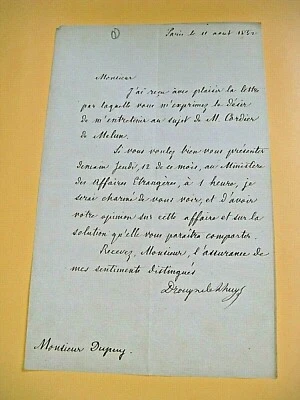 ①
Paris le 11 août 1852
Monsieur
J'ai reçu avec plaisir la lettre
par laquelle vous m'exprimez le désir
de m'entretenir au sujet de M. Cordier
de Melun.
Si vous voulez bien vous présenter
demain Jeudi, 12 de ce mois, au Ministère
des Affaires Etrangères, à 1 heure, je
serai charmé de vous voir, et d'avoir
votre opinion sur cette affaire et sur la
solution qu'elle vous paraîtra comporter.
Recevez, Monsieur, l'assurance de
mes sentiments distingués
Drouyn de Lhuys
Monsieur Dupuy